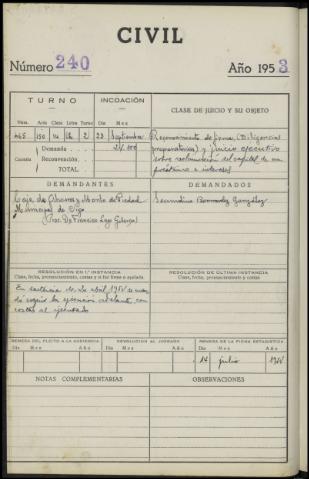 CIVIL
Número 240 Año 1953
TURNO INCOACIÓN CLASE DE JUICIO Y SU OBJETO
Núm. Acta Clase Letra Turno Día Mes
465 150 14 2 23 Septiembre
Cuantía
Demanda
Reconvención
TOTAL
Reconocimiento de firma, (Diligencias
preparatorias) y juicio ejecutivo
sobre reclamación del capital de un
préstamo e intereses
DEMANDANTES DEMANDADOS
Caja de Ahorros y Monte de Piedad
Municipal de Vigo
(Proc. D. Francisco Lago
Bermudez González
RESOLUCIÓN EN 1.ª INSTANCIA
Clase, fecha, pronunciamiento, costas y si fue firme o apelada
RESOLUCIÓN DE ÚLTIMA INSTANCIA
Clase, fecha, pronunciamiento y costas
En sentencia de 20 abril 1954 se manda
seguir la ejecución adelante, con
costas al ejecutado
REMESA DEL PLEITO A LA AUDIENCIA DEVOLUCIÓN AL JUZGADO REMESA DE LA FICHA ESTADÍSTICA
Día Mes Año Día Mes Año Día Mes Año
14 julio 1954
NOTAS COMPLEMENTARIAS OBSERVACIONES